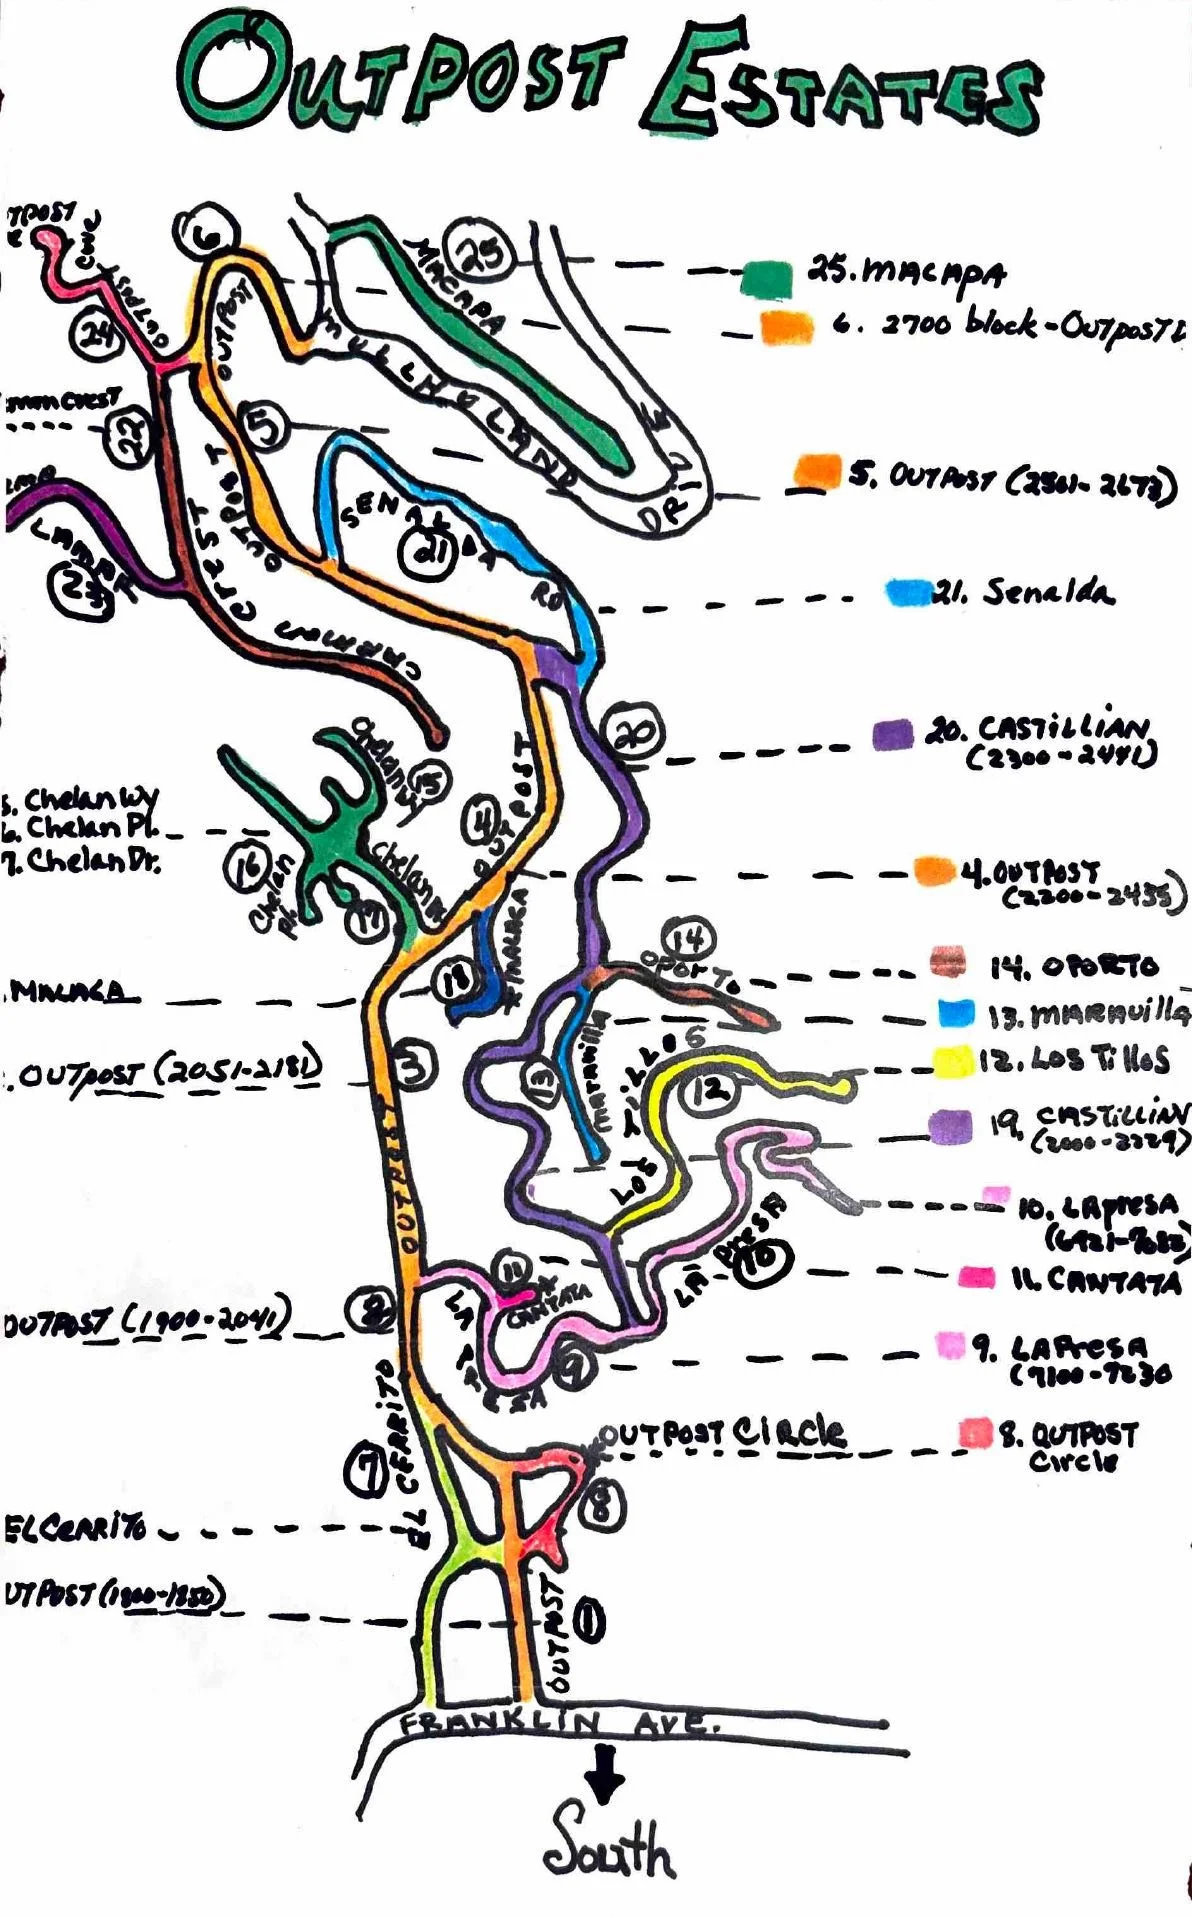 OUTPOST ESTATES
6
25
MACAPA
25. MACAPA
COVE
OUTPOST
24
OUTPOST
6. 2700 block - OUTPOST
MULLHOLAND DRIVE
22
5
OUTPOST
5. OUTPOST (2501-2673)
SENALDA RD
21
21. Senalda
23
CREST
CARMEN
20
20. CASTILLIAN
(2300-2441)
Chelan Wy
15
. Chelan Wy
. Chelan Pl.
7. Chelan Dr.
16
Chelan Pl.
17
Chelan
4
OUTPOST
4. OUTPOST
(2200-2435)
MALAGA
18
. MALAGA
14
OPORTO
14. OPORTO
13. MARAVILLA
13
MARAVILLA
LOS TILLOS
12
12. LOS TILLOS
. OUTPOST (2051-2181)
3
OUTPOST
19. CASTILLIAN
(2000-2229)
LA PRESA
10
10. LAPRESA
11
CANTATA
11. CANTATA
OUTPOST (1900-2041)
2
LA PRESA
9
9. LAPRESA
(7100-7230
EL CERRITO
7
OUTPOST CIRCLE
8. OUTPOST
Circle
8
EL CERRITO
UTPOST (1800-1850)
OUTPOST
1
FRANKLIN AVE.
South